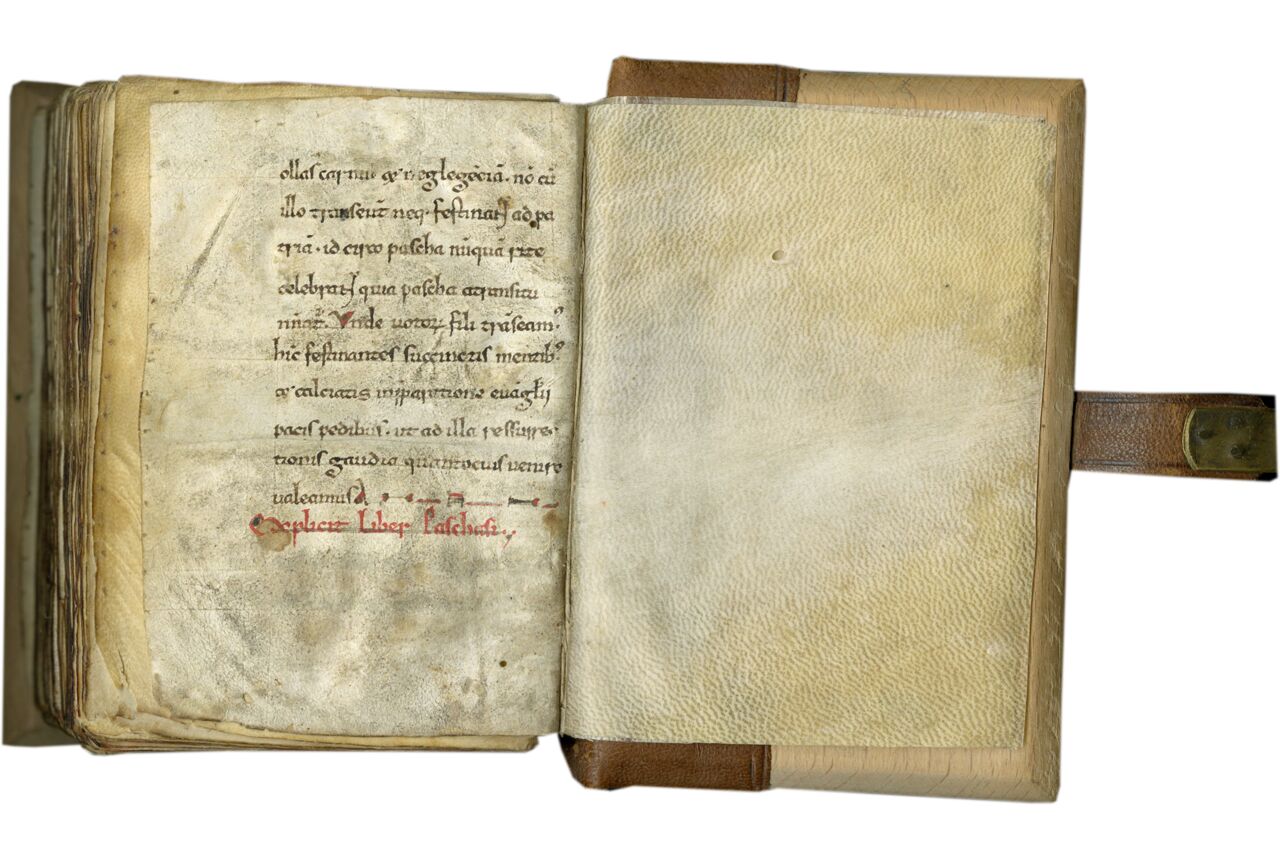 ollas carniū & neglegēciā. nō cū
illo transeūt neq; festinant ad pa
triā. id circo pascha nūquā rite
celebrant quia pascha transitu
Vnde uotor fili trāseam'
hic festinantes succinctis mentib'
& calciatis inp̄paratione euāglii
pacis pedibus. ut ad illa ressurre
tionis gaudia quantocius uenire
ualeamus
Explicit Liber Paschasi.,